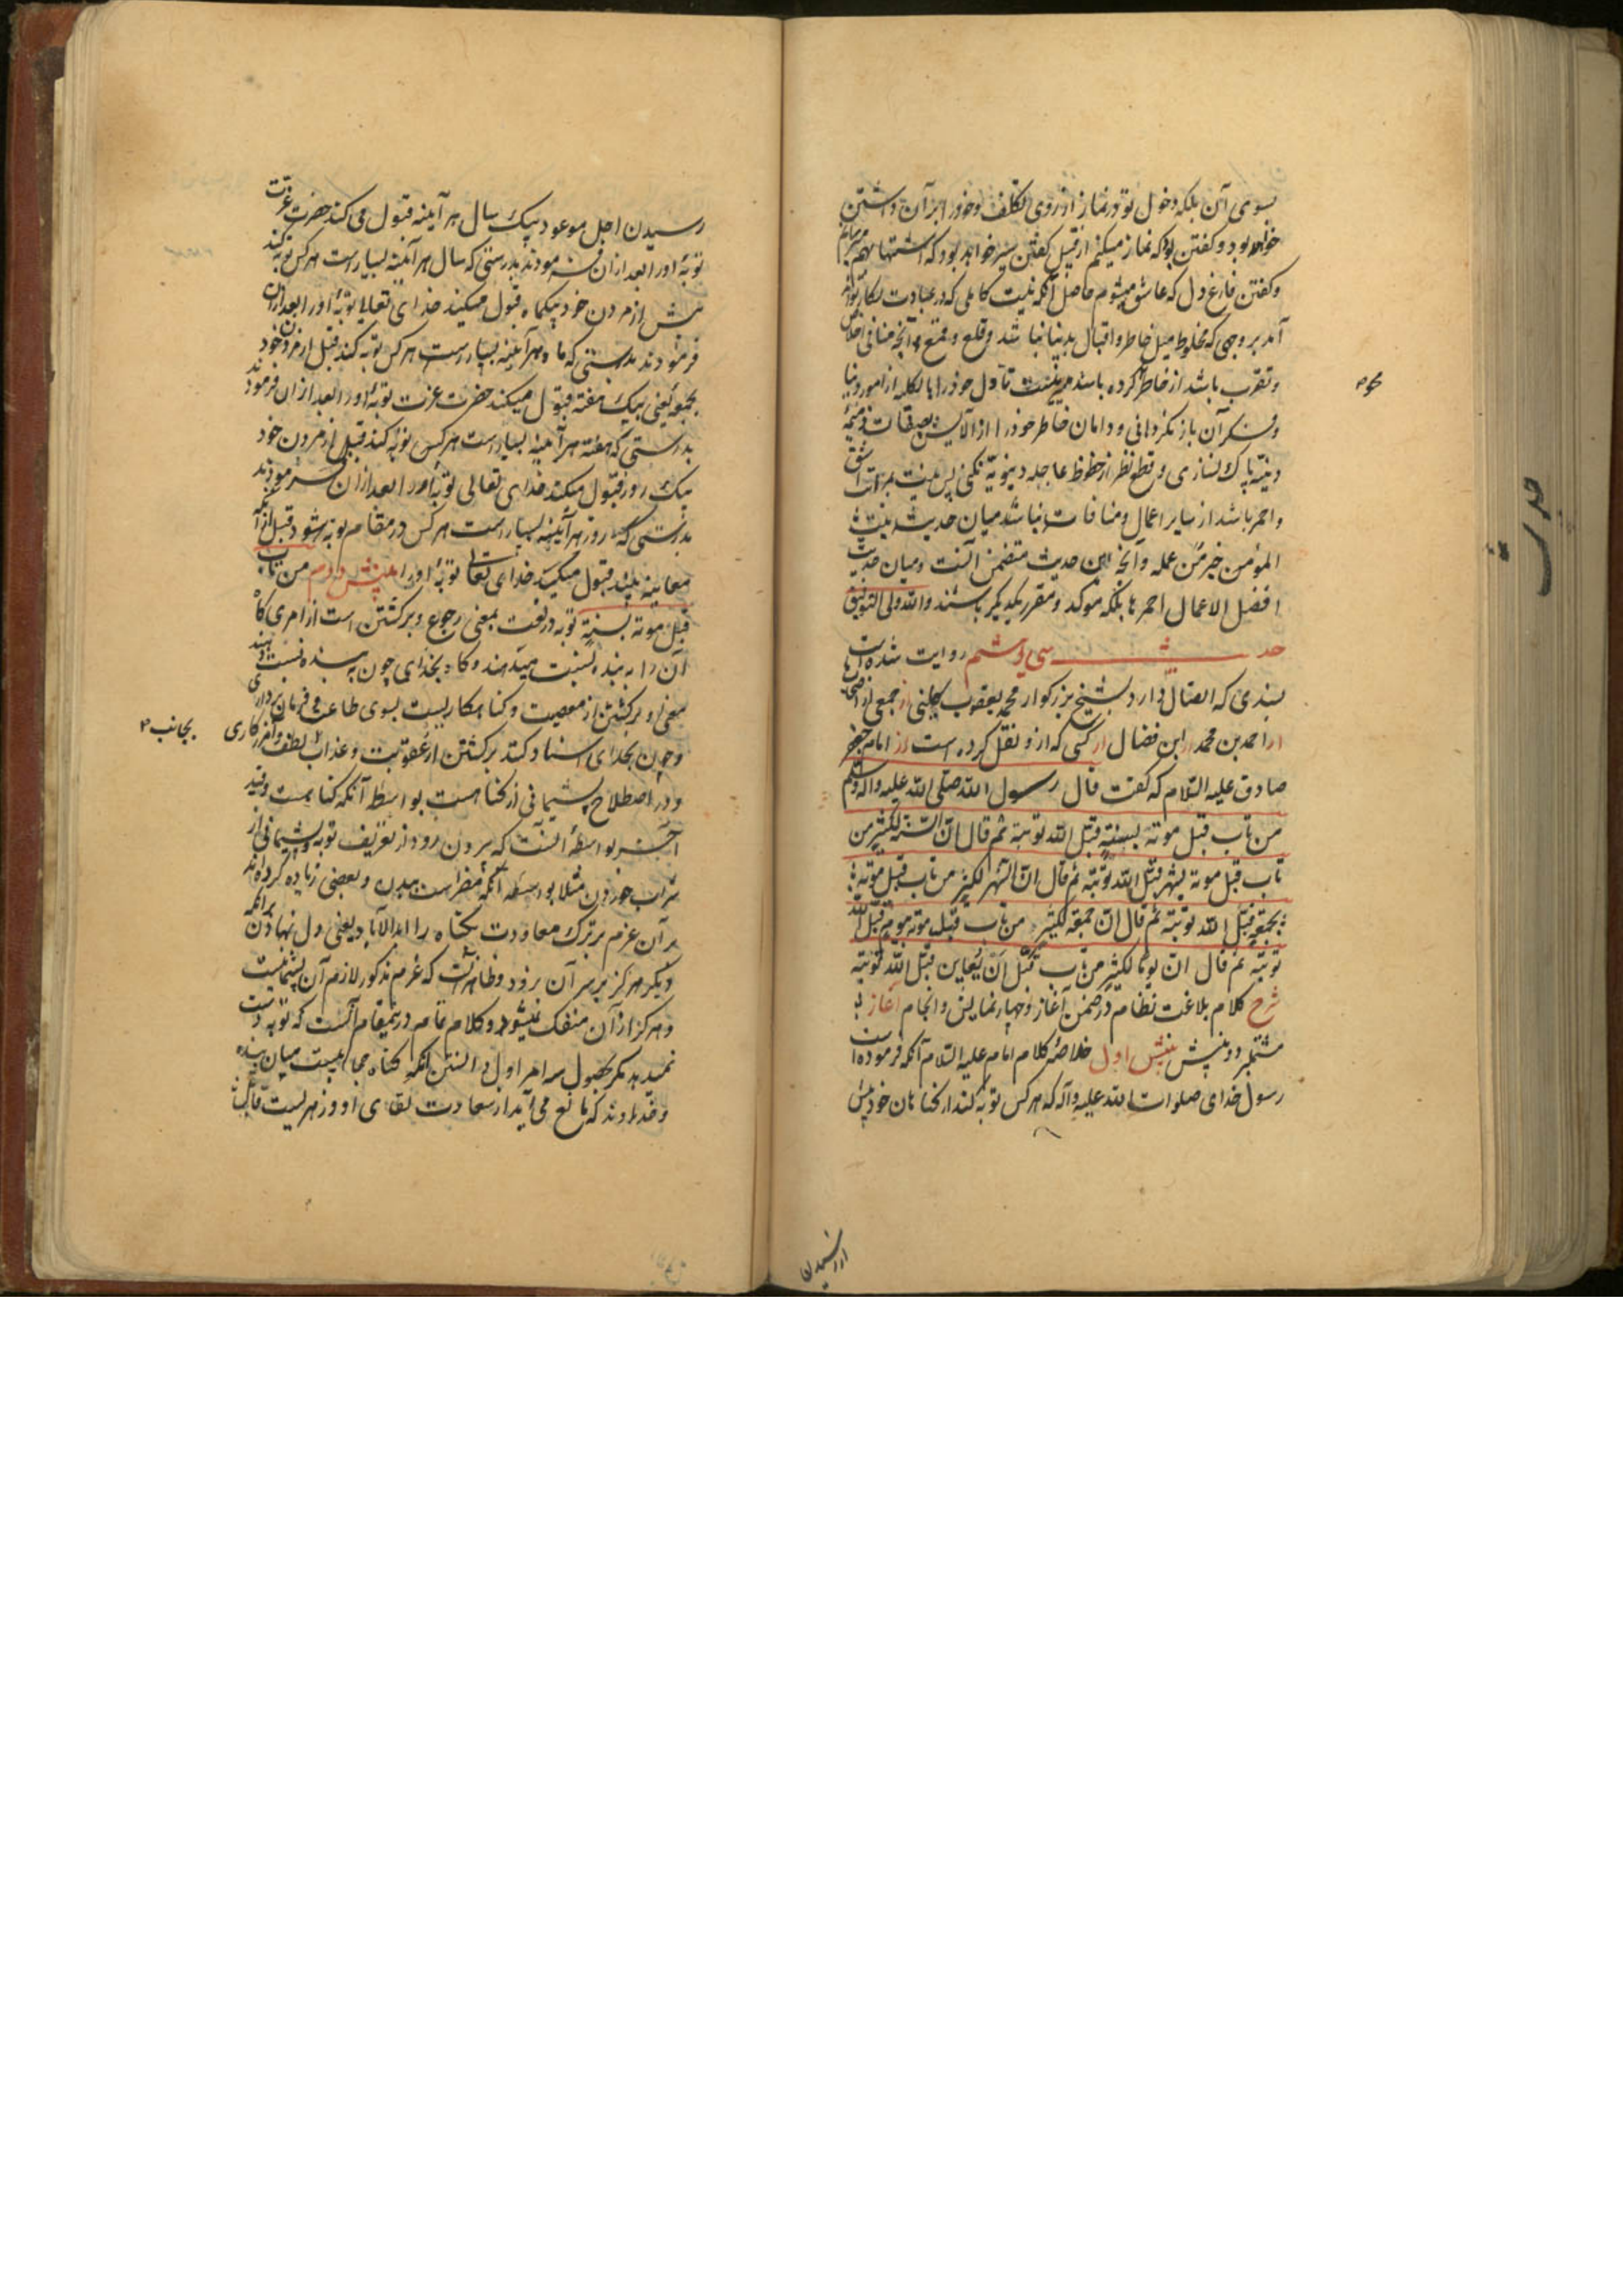 بسوی آن بلکه دخول تو در نماز از روی تکلف و خود را بر آن داشتن
خواهد بود و گفتن تو که نماز میکنم از قبیل گفتن سیر خواهد بود که اشتها بهم میرسانم
و گفتن فارغ دل که عاشق میشوم حاصل آنکه نیت کاملی که در عبادت بکار تواند
آمد بر وجهی که مخلوط میل خاطر و اقبال بدنیا نباشد و قلع و قمع آنچه منافی اخلاص
و تقرب باشد از خاطر کرده باشد میسر نیست تا دل خود را بالکلیه از امور دنیا
و فکر آن باز نگردانی و دامان خاطر خود را از آلایش صفات ذمیمه
دنیه پاک نسازی و قطع نظر از حظوظ عاجله دنیویه نکنی پس نیت بمراتب اشق
و احمز باشد از سایر اعمال و منافات نباشد میان حدیث نیت
المؤمن خیر من عمله و آنچه این حدیث متضمن آنست و میان حدیث
افضل الاعمال احمزها بلکه مؤکد و مقرر یکدیگر باشند والله ولی التوفیق
حدیث سی و هشتم روایت شده است
بسندی که اتصال دارد بشیخ بزرگوار محمد یعقوب کلینی از جمعی از اصحاب
از احمد بن محمد از ابن فضال از کسی که از او نقل کرده است از امام جعفر
صادق علیه السلام که گفت قال رسول الله صلی الله علیه واله وسلم
من تاب قبل موته بسنة قبل الله توبته ثم قال ان السنة لکثیر من
تاب قبل موته بشهر قبل الله توبته ثم قال ان الشهر لکثیر من تاب قبل موته
بجمعة قبل الله توبته ثم قال ان جمعة لکثیر من تاب قبل موته بیوم قبل الله
توبته ثم قال ان یوما لکثیر من تاب قبل ان یعاین قبل الله توبته
شرح کلام بلاغت نظام در ضمن آغاز و چهار نمایش و انجام آغاز
مشتمل بر دو بینش بینش اول خلاصه کلام امام علیه السلام آنکه فرموده است
رسول خدای صلوات الله علیه وآله که هر کس توبه کند از گناهان خود پیش
از رسیدن
رسیدن اجل موعود بیک سال هر آینه قبول می کند حضرت عزت
توبهٔ او را بعد از آن فرمودند بدرستی که سال هر آینه بسیار است هر کس توبه کند
پیش از مردن خود بیکماه قبول میکند خدای تعالی توبهٔ او را بعد از آن
فرمودند بدرستی که ماه هر آینه بسیار است هر کس توبه کند قبل از مردن خود
بجمعه یعنی بیک هفته قبول میکند حضرت عزت توبهٔ او را بعد از آن فرمودند
بدرستی که هفته هر آینه بسیار است هر کس توبه کند قبل از مردن خود
بیک روز قبول میکند خدای تعالی توبهٔ او را بعد از آن فرمودند
بدرستی که روز هر آینه بسیار است هر کس در مقام توبه شود قبل از آنکه
معاینه بیند قبول میکند خدای تعالی توبهٔ او را بینش دوم من تاب
قبل موته بسنة توبه در لغت بمعنی رجوع و برگشتن است از امری گاه
آن را به بنده نسبت میدهند و گاه بخدای چون به بنده نسبت دهند
معنی او برگشتن از معصیت و گناهکاریست بسوی طاعت و فرمان برداری
و چون بخدای اسناد کنند برگشتن از عقوبت و عذاب لطف و آمرزگاری
بجانب
و در اصطلاح پشیمانی از گناهست بواسطه آنکه گناهست و قید
آخر بواسطهٔ آنست که بیرون رود از تعریف توبه پشیمانی از
شراب خوردن مثلا بواسطه آنکه مضر است ببدن و بعضی زیاده کرده اند
بر آن عزم بر ترک معاودت بگناه را ابد الآباد یعنی دل نهادن برآنکه
دیگر هرگز بر سر آن نرود و ظاهر آنست که عزم مذکور لازم آن پشیمانیست
و هرگز از آن منفک نمیشود و کلام تمام در نمیقام آنست که توبه دست
نمیدهد مگر بحصول سه امر اول دانستن آنکه گناه حجابیست میان بنده
و خداوند که مانع می آید از سعادت لقای او و زهریست قاتل